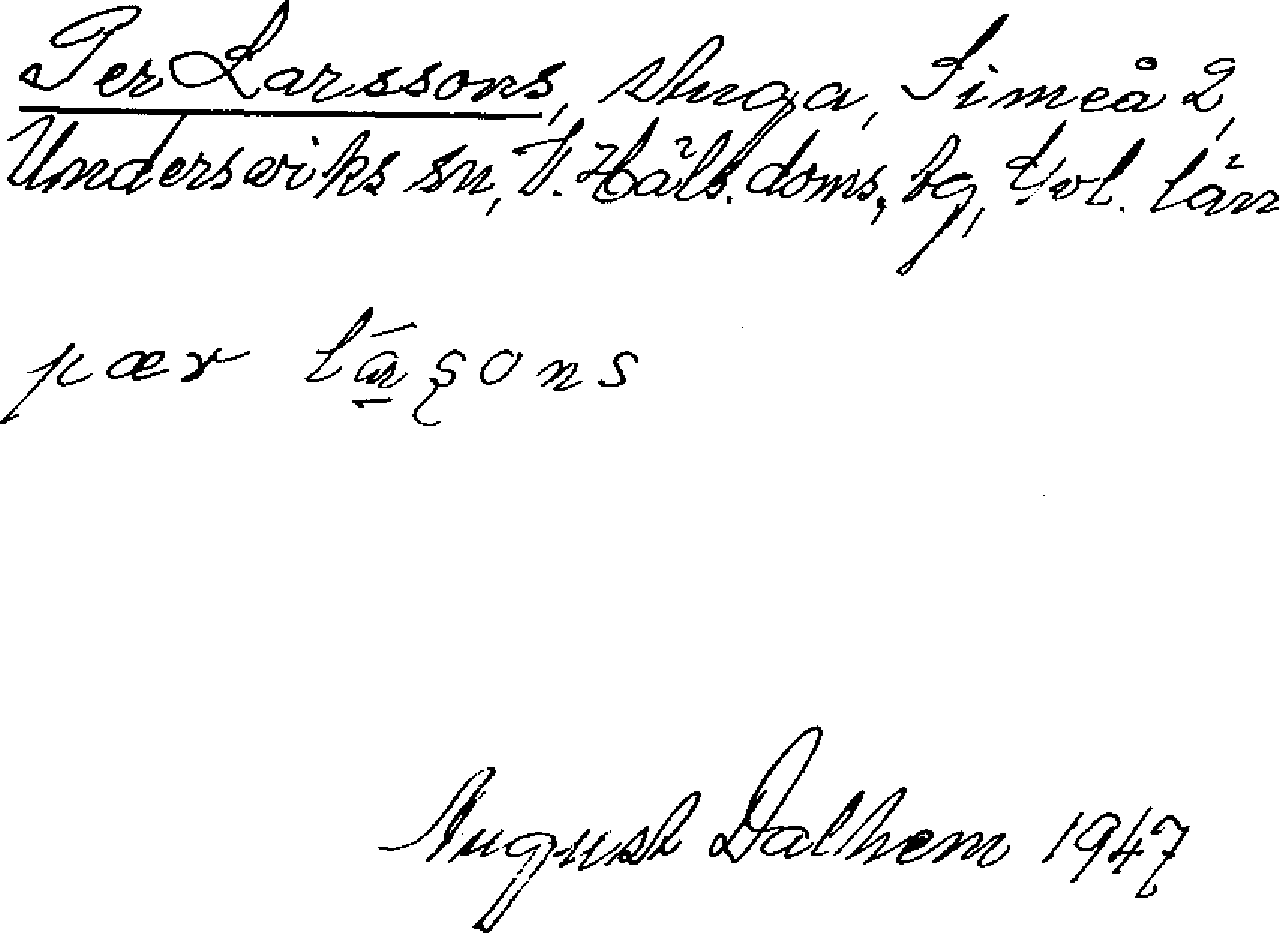 Per Larssons, stuga, Simeå 2,
Undersviks sn, V. Häls. doms. bg, Gävl. län
pær lạ́ʂons
August Dalhem 1947